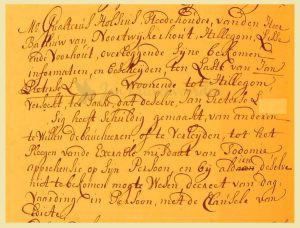 Mr Gualterus Holsius, Stedehouder, van den Heer
Balluw van Noortwijkerhout, Hillegom, Lisse
ende Voorhout, overleggende syne bekomen
informatien, en bescheyden, ten laste van Jan
Pieterse L wonende tot Hillegom,
versoeckt, ten sake dat deselve Jan Pieterse L
sig heeft schuldig gemaackt, van anderen
te willen debaucheren, of te verleyden, tot het
pleegen vande Execrable misdaet van Sodomie
apprehensie op syn Persoon, en by aldien deselve
niet te bekomen mogte wesen, decreet van dag-
vaarding in Persoon, met de Clausule van
Edicte